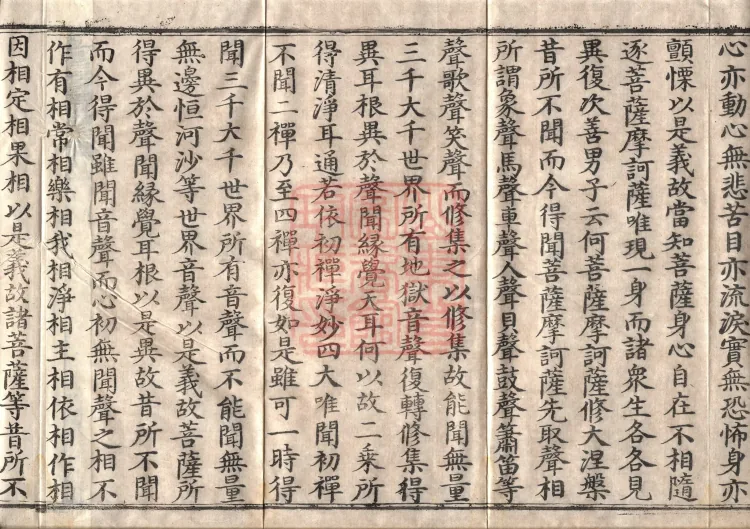 心亦動心無悲苦目亦流淚實無恐怖身亦
顫慄以是義故當知菩薩身心自在不相隨
逐菩薩摩訶薩唯現一身而諸衆生各各見
異復次善男子云何菩薩摩訶薩修大涅槃
昔所不聞而今得聞菩薩摩訶薩先取聲相
所謂象聲馬聲車聲人聲貝聲鼓聲簫笛等
聲歌聲哭聲而修集之以修集故能聞無量
三千大千世界所有地獄音聲復轉修集得
異耳根異於聲聞緣覺天耳何以故二乘所
得清淨耳通若依初禪淨妙四大唯聞初禪
不聞二禪乃至四禪亦復如是雖可一時得
聞三千大千世界所有音聲而不能聞無量
無邊恒河沙等世界音聲以是義故菩薩所
得異於聲聞緣覺耳根以是異故昔所不聞
而今得聞雖聞音聲而心初無聞聲之相不
作有相常相樂相我相淨相主相依相作相
因相定相果相以是義故諸菩薩等昔所不